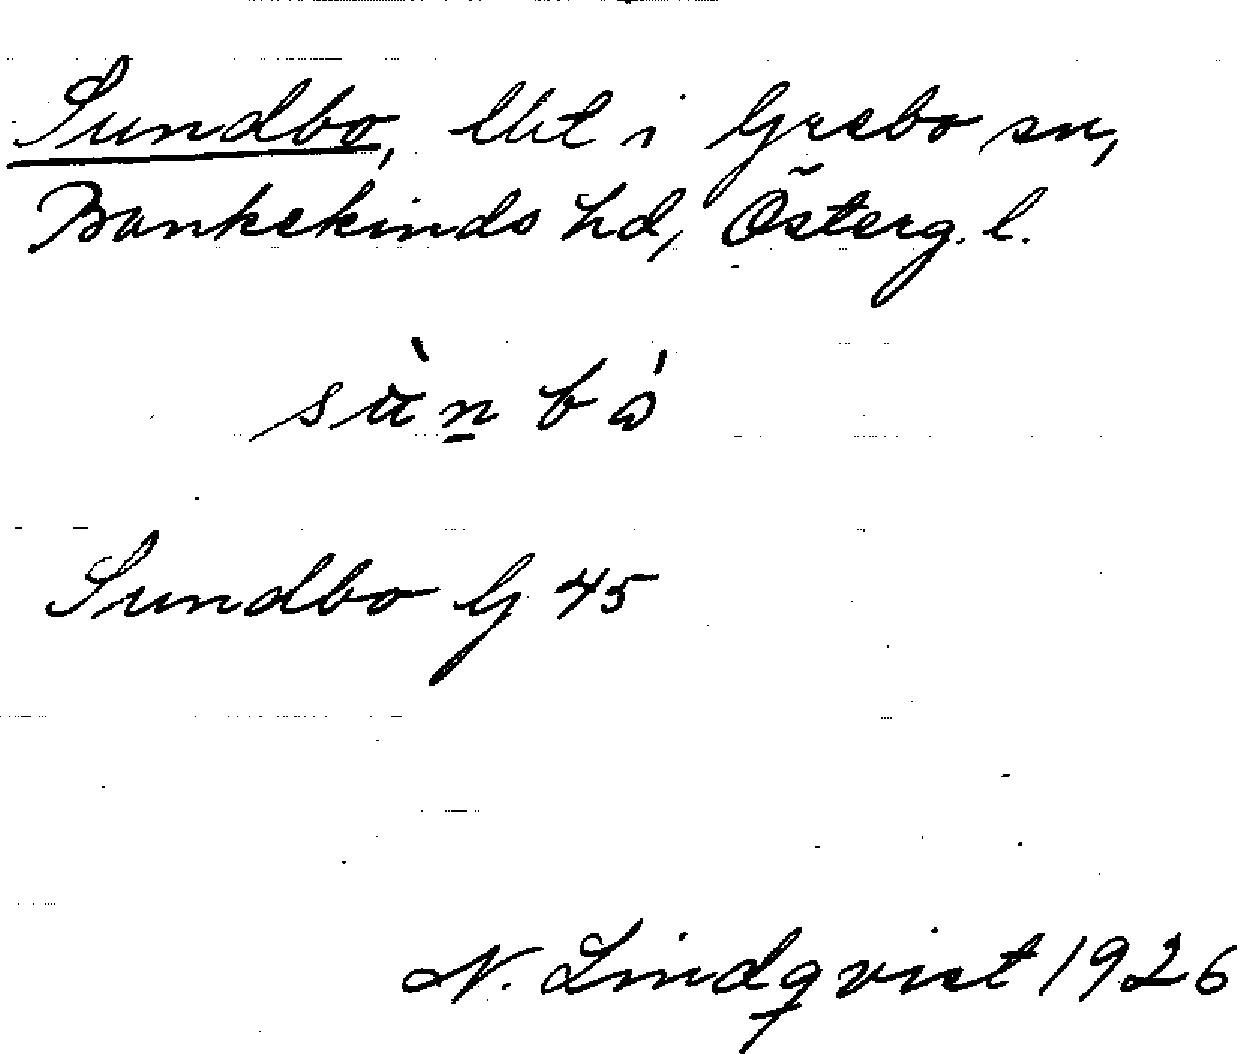 Sundbo, lht i Grebo sn,
Bankekinds hd, Österg. l.
Sundbo G 45
N. Lindqvist 1926